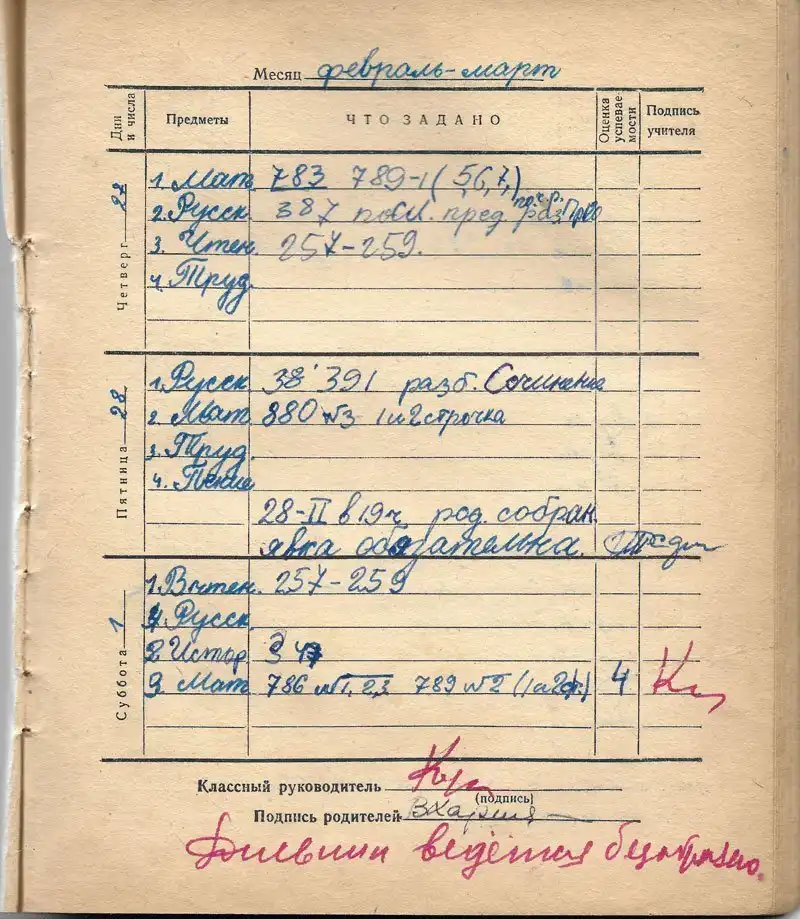 Месяц февраль-март
Дни и числа Предметы ЧТО ЗАДАНО Оценка успевае- мости Подпись учителя
Четверг 27
1. Мат. 783 789-1 (5,6,7,)
2. Русск. 387 повт. пред. раз.
3. Чтен. 257-259.
4. Труд.
Пятница 28
1. Русск 38' 391 разб. Сочинение
2. Мат. 880 №3 1 и 2 строчка
3. Труд.
4. Пение
28-II в 19ч. род. собран.
явка обязательна.
Суббота 1
1. Вчтен. 257-259
Русск.
2 Истор.
3 Мат 786 №1,2,3 789 №2 (1 и 2 ) 4
Классный руководитель
(подпись)
Подпись родителей
Дневник ведётся безобразно.